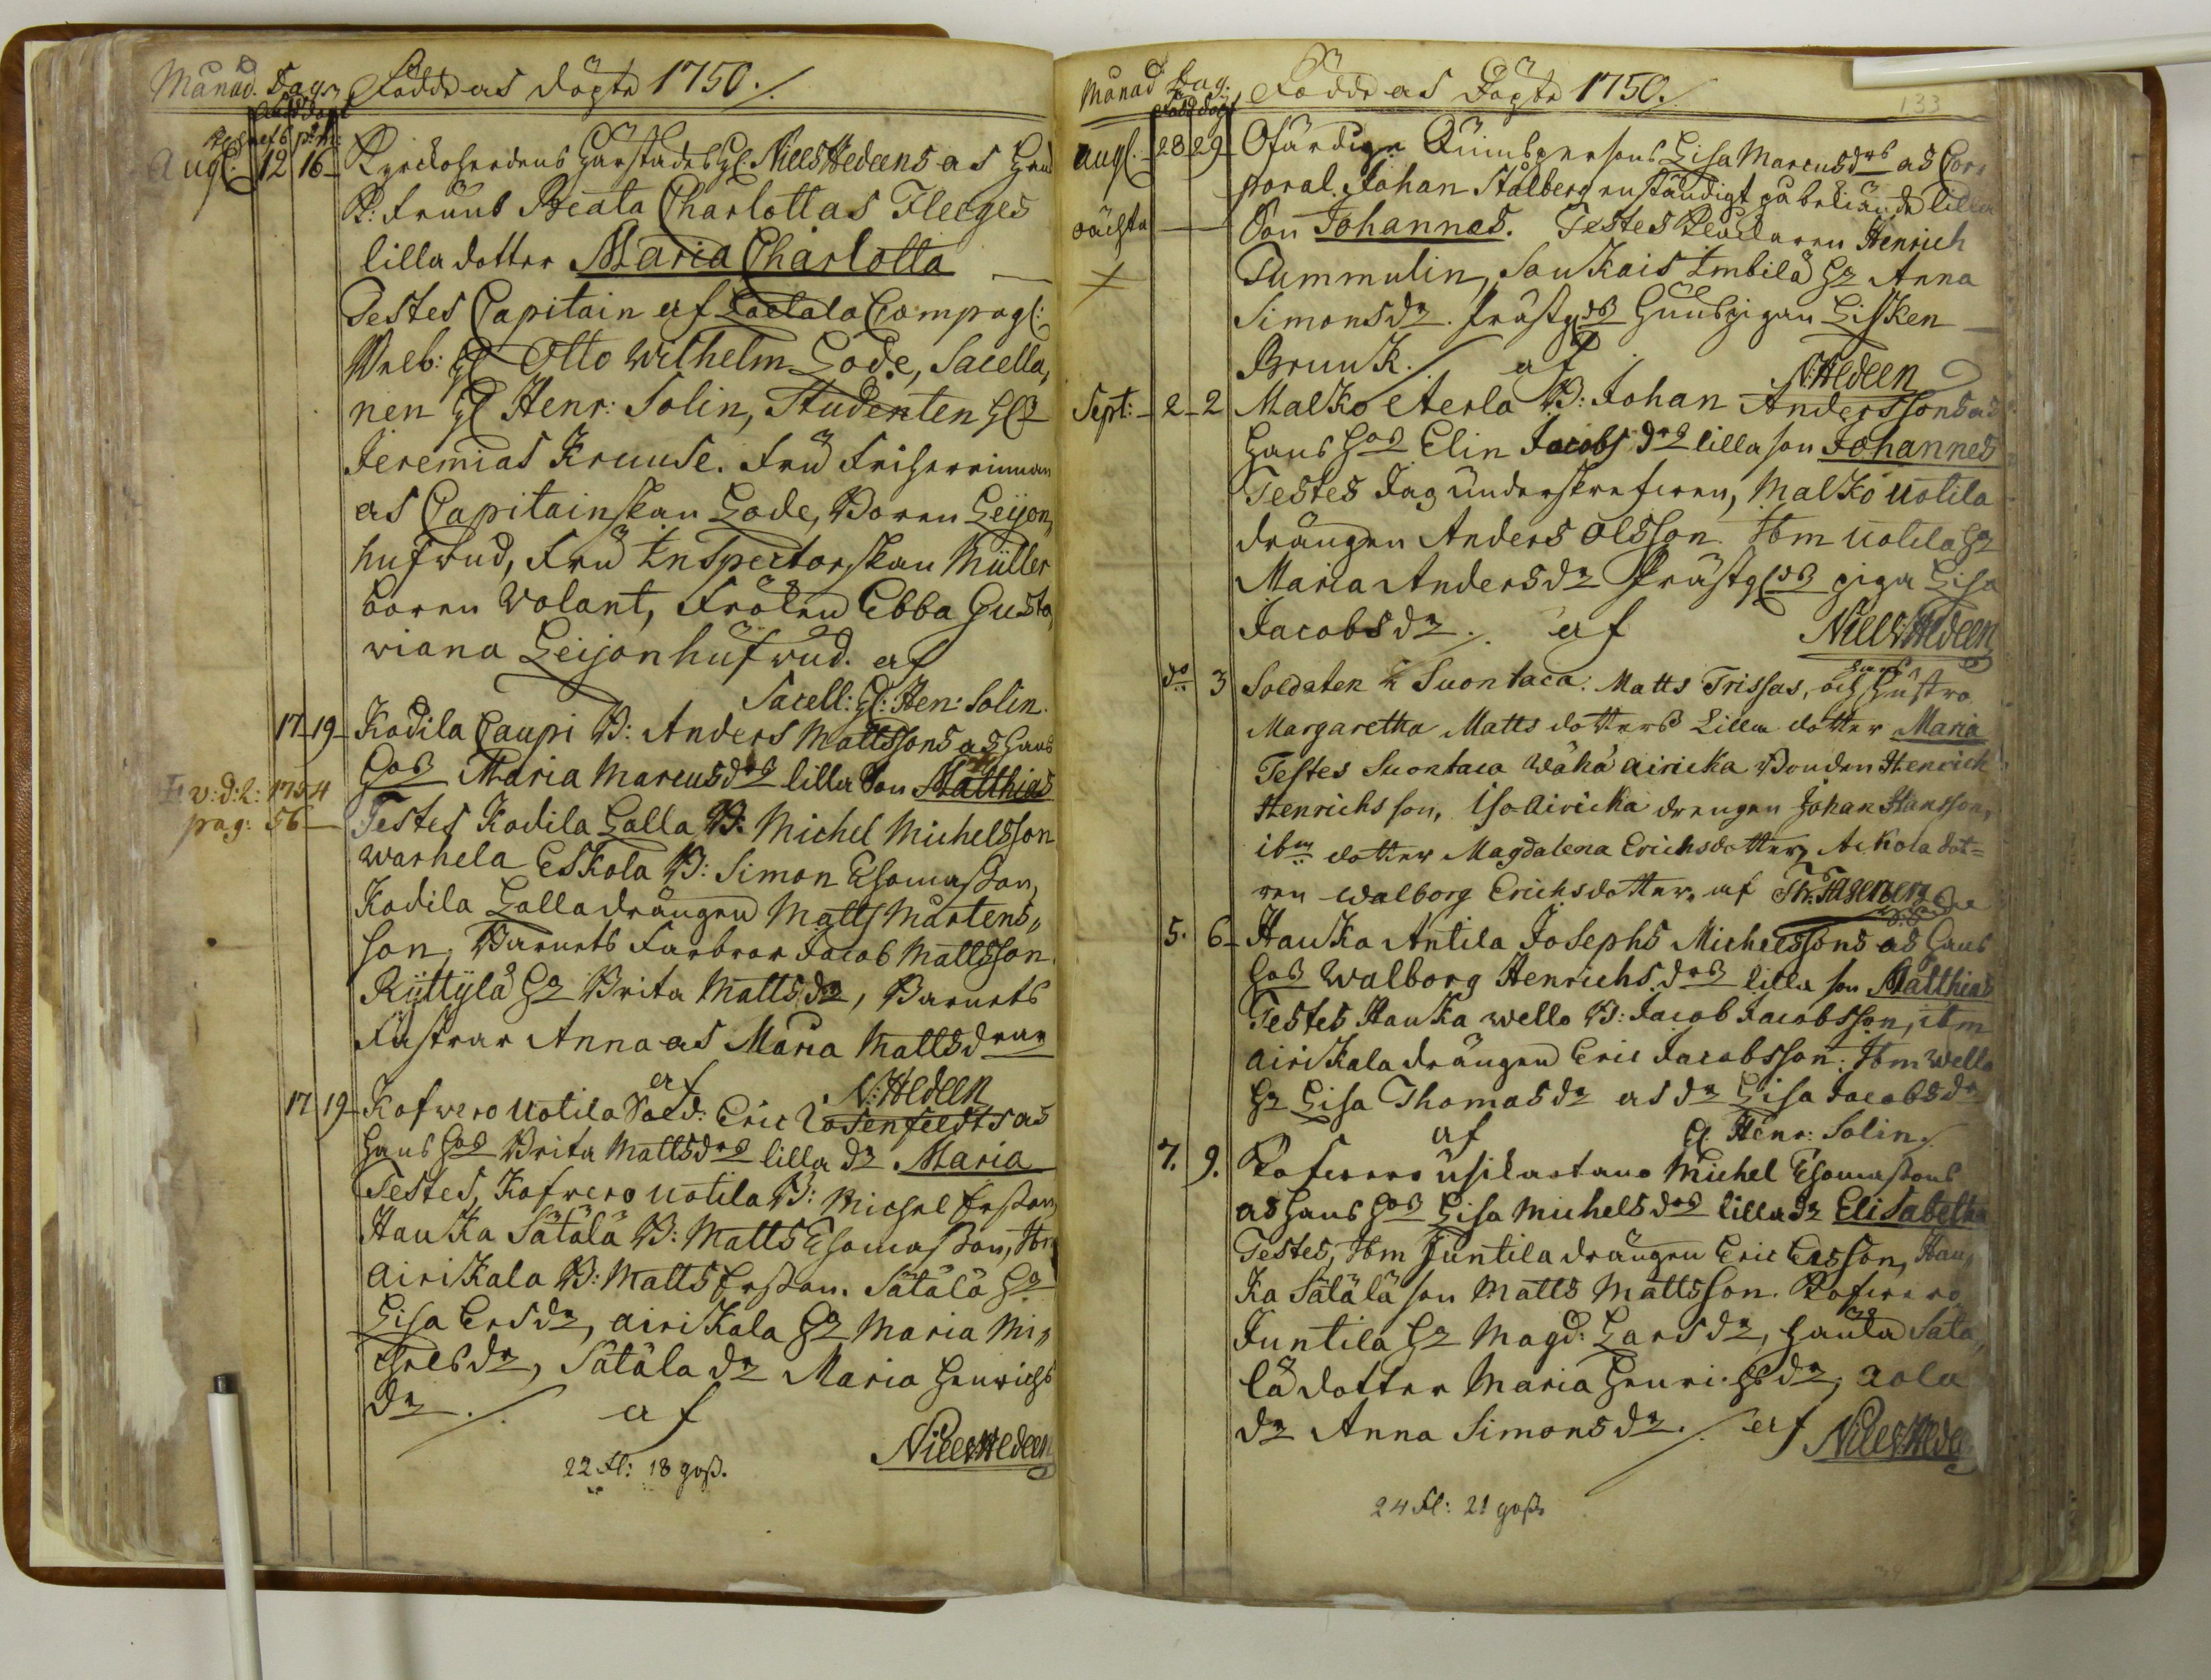 Månad. Dag. Födde as Döpte 1750./.
född döpt
Augl. 12 16 Kyrckoherdens Härstädes Hl: Niels Hedeens as Hans
K: Fruus Beata Charlottas Fleeges
lilla dotter Maria Charlotta
Testes Capitain af Compagl:
Otto Wilhelm Gode, Sacella,
nen Hl Henr: Solin, Studenten Hl
Jeremias Kruuse. Fru Friherrinnan
as Capitainskan Gode, Boren Leijon,
hufwud, Fru Inspectorskan Müller
boren Volant, Fröken Ebba Gusta,
viana Leijonhufwud. af
Sacell: Hl: Hen: Solin.
17 19 Kodila Caupi B: Anders Mattssons as Hans
Hos Maria Marcusdrs lilla Son Matthias
v: d: L: 1754
pag: 56
Testes Kodila Lalla B: Michel Michelsson
Warhela Eskola B: Simon Thomasson,
Kodila Lalla drängen Matts Mårtens,,
son, Barnets Farbror Jacob Mattsson.
Ryttylä Ha Brita Mattsdr, Barnets
Fastrar Anna as Maria Mattsdrar
af N: Hedeen
17 19 Kofwero Uotila Sold: Eric Rosenfeldts as
Hans Hos Brita Mattsdrs lilla dr Maria
Testes, Kofwero Uotila B: Michel Ersson,
Hauka Sätälä B: Matts Thomasson, Ibm
Airikala B: Matts Ersson. Sätälä Ha
Lisa Ersdr, Airikala Ha Maria Mi,,
chelsdr, Sätäla dr Maria Henrichs
dr./. af
Niels Hedeen
22 fl: 18 goss.
Månad Dag. Födde as Döpte 1750./
133
född döpt
Augl. 28 29 Ofärdige Quinsperson Lisa Marcusdrs as Cor,
poral Johan Stålberg enständigt påbeliände lilla
oächta Son Johannes. Testes Henrich
Tummulin, Saukais Imbilä Ha Anna
Simonsdr. Prästgds Huuspigan Lisken
Bruuk./. af N: Hedeen
Sept: 2 2 Malko Aerla B: Johan Anderssons as
Hans Hos Elin Jacobsdrs lilla son Johannes
Testes Jag underskrefwen, Malko Uotila
drängen Anders Olsson. Ibm Uotila Ha
Maria Andersdr Prästgds piga Lisa
Jacobsdr./. af Niels Hedeen
do 3 Soldaten Suontaca: Matts Trissas, och hans Hustro
Margaretha Matts dotters Lilla dotter Maria
Testes Suontaca Wähä Airicka Bonden Henrich
Henrichs son, Iso Airicka drengen Johan Hansson,
ibm dotter Magdalena Erichsdotter, Ackola dot=
ren Walborg Erichsdotter. af
5. 6 Hauka Antila Josephs Michelssons as Hans
Hos Walborg Henrichs.drs lilla son Matthias
Testes Hauka Wello B: Jacob Jacobsson, ibm
Airikala drängen Eric Jacobsson. Ibm Wello
Ha Lisa Thomasdr as dr Lisa Jacobsdr
af Henr: Solin./
7. 9. Kofwero Michel Thomassons
as Hans Hos Lisa Michelsdrs lilla dr Elisabetha
Testes, Ibm Juntila drängen Eric Ersson, Hau,
ka Sätälä son Matts Mattsson. Kofwero
Juntila Ha Magd: Larsdr, Hauka Sätä,
lä dotter Maria Henrichsdr, Aola
dr Anna Simonsdr./. af Niels Hedeen
24 fl: 21 goss